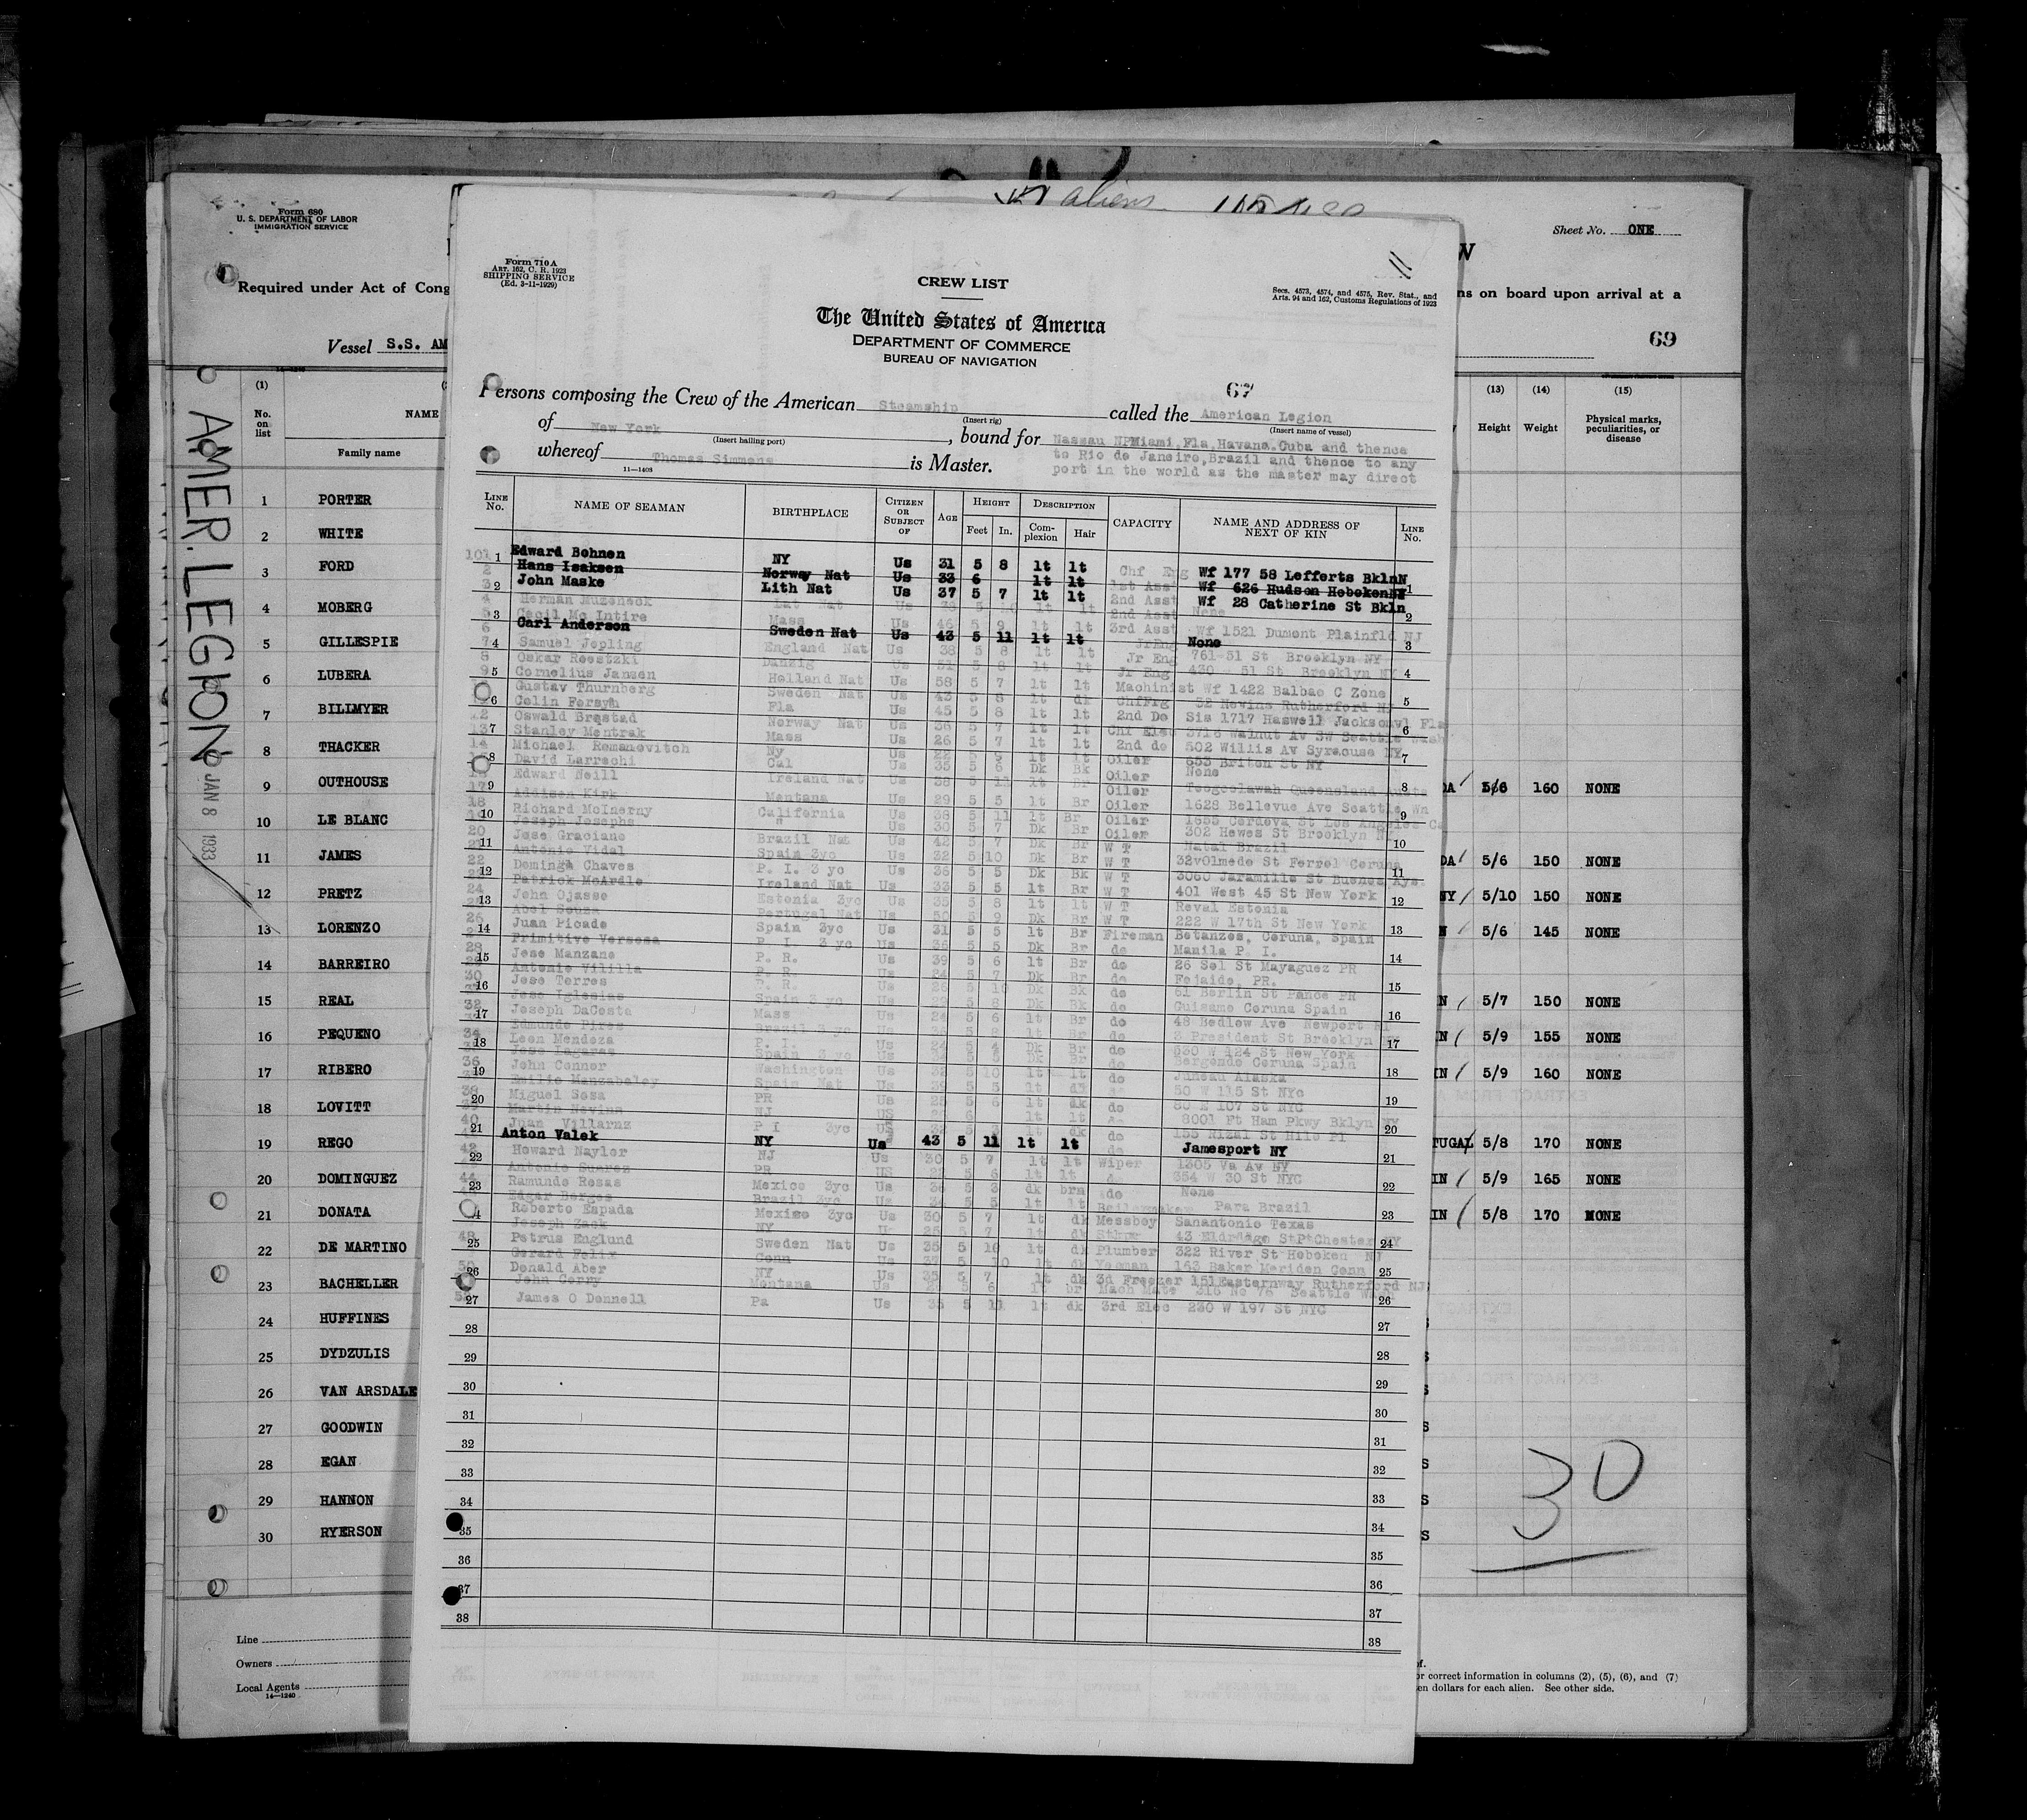 aliens
Form 680
U. S. DEPARTMENT OF LABOR
IMMIGRATION SERVICE
Required under Act of Cong
Vessel S.S. AM
(1)
No. on list
NAME
Family name
1 PORTER
2 WHITE
3 FORD
4 MOBERG
5 GILLESPIE
6 LUBERA
7 BILLMYER
8 THACKER
9 OUTHOUSE
10 LE BLANC
11 JAMES
12 PRETZ
13 LORENZO
14 BARREIRO
15 REAL
16 PEQUENO
17 RIBERO
18 LOVITT
19 REGO
20 DOMINGUEZ
21 DONATA
22 DE MARTINO
23 BACHELLER
24 HUFFINES
25 DYDZULIS
26 VAN ARSDALE
27 GOODWIN
28 EGAN
29 HANNON
30 RYERSON
Line
Owners
Local Agents
14—1240
AMER. LEGION
JAN 8 1933
Form 710 A
ART. 162, C. R. 1923
SHIPPING SERVICE
(Ed. 3-11-1929)
11
CREW LIST
Secs. 4573, 4574, and 4575, Rev. Stat., and
Arts. 94 and 162, Customs Regulations of 1923
The United States of America
DEPARTMENT OF COMMERCE
BUREAU OF NAVIGATION
67
Persons composing the Crew of the American Steamship called the American Legion
(Insert rig) (Insert name of vessel)
of New York, bound for Nassau NPMiami,Fla,Havana.Cuba and thence
(Insert hailing port)
to Rio de Janeiro,Brazil and thence to any
whereof Thomas Simmons is Master.
port in the world as the master may direct
11—1408
LINE No. NAME OF SEAMAN BIRTHPLACE CITIZEN OR SUBJECT OF AGE HEIGHT Feet In. DESCRIPTION Complexion Hair CAPACITY NAME AND ADDRESS OF NEXT OF KIN LINE No.
101 Edward Bohnen NY Us 31 5 8 lt lt Chf Eng Wf 177 58 Lefferts BklnN
2 Hans Isaksen Norway Nat Us 33 6 lt lt 1st Asst Wf 626 Hudson HobokenNY
3 John Maske Lith Nat Us 37 5 7 lt lt 2nd Asst Wf 28 Catherine St Bkln
4 Herman Muzeneck Lat Nat Us lt lt 2nd Asst None
5 Cecil Mc Intire Mass Us 46 5 9 lt lt 3rd Asst Wf 1521 Dumont Plainfld NJ
6 Carl Anderson Sweden Nat Us 43 5 11 lt lt JrEng None
7 Samuel Jepling England Nat Us 38 5 8 lt lt Jr Eng 761-51 St Brooklyn NY
8 Oskar Reestzki Danzig Us 5 8 lt lt Jr Eng 430 - 51 St Brooklyn NY
9 Cornelius Jansen Holland Nat Us 58 5 7 lt lt Machinist Wf 1422 Balboa C Zone
Gustav Thurnberg Sweden Nat Us 43 5 8 lt dk ChfFrg 32 Hovins Rutherford NJ
Colin Forsyth Fla Us 45 5 8 lt lt 2nd Do Sis 1717 Haswell Jacksonvl Fla
12 Oswald Brestad Norway Nat Us 36 5 7 lt lt Chf Elec 3716 Walnut Av SW Seattle Wash
13 Stanley Mentrak Mass Us 26 5 7 lt lt 2nd do 502 Willis Av Syracuse NY
14 Michael Romanovitch Ny Us 22 5 lt lt Oiler 653 Briton St NY
David Larrechi Cal Us 35 5 6 Dk Bk Oiler None
Edward Neill Ireland Nat Us 38 5 11 lt Br Oiler Toogoolawah Queensland
17 Addison Kirk Montana Us 29 5 5 lt Br Oiler 1628 Bellevue Ave Seattle Wn
18 Richard McInerny California Us 38 5 11 lt Br Oiler 1855 Cordova St Los Angeles Ca
Joseph Josephs " Us 30 5 7 Dk Br Oiler 302 Hewes St Brooklyn NY
20 Jose Graciano Brazil Nat Us 42 5 7 Dk Br W T Natal Brazil
Antonio Vidal Spain 3yc Us 32 5 10 Dk Br W T Olmedo St Ferrol Coruna
22 Dominga Chaves P. I. 3 yc Us 36 5 5 Dk Bk W T 3060 Jaramillo St Buenos Ays.
Patrick McArdle Ireland Nat Us 33 5 5 lt Br W T 401 West 45 St New York
24 John Ojasse Estonia 3yc Us 35 5 8 lt lt W T Reval Estonia
Abel Souza Portugal Nat Us 50 5 9 Dk Br W T 222 W 17th St New York
26 Juan Picado Spain 3yc Us 31 5 5 lt Br Fireman Betanzos, Coruna, Spain
Primitivo Versosa P. I. 3 yc Us 36 5 5 Dk Br do Manila P. I.
28 Jose Manzano P. R. Us 39 5 6 lt Br do 26 Sol St Mayaguez PR
Antonio Vililla P. R. Us 24 5 7 Dk Br do Fajaido, PR.
30 Jose Torres P. R. Us 26 5 10 Dk Bk do 61 Berlin St Ponce PR
Jose Iglesias Spain 3 yc Us 5 8 Dk Bk do Guisamo Coruna Spain
32 Joseph DaCosta Mass Us 24 5 6 lt Br do 48 Bedlow Ave Newport RI
Edmundo Pires Brazil 3 yc Us 5 8 lt Br do 3 President St Brooklyn
34 Leon Mendoza P. I. Us 24 5 4 Dk Br do 530 W 124 St New York
Jose Lagares Spain 3 yc Us 5 5 Dk Br do Bergondo Coruna Spain
36 John Connor Washington Us 32 5 10 lt lt do Juneau Alaska
Emilio Manzabeley Spain Nat Us 39 5 5 lt dk 50 W 115 St NYC
38 Miguel Sosa PR Us 5 8 lt dk do 80 E 107 St NYC
Martin Hevina NJ US lt lt do 8001 Ft Ham Pkwy Bklyn NY
40 Juan Villarnz P I 3yc US lt dk do 155 Rizal St Hilo PI
Anton Valek NY Us 43 5 11 lt lt do Jamesport NY
42 Howard Naylor NJ Us 30 5 7 lt lt Wiper 1305 Va Av NY
Antonio Suarez PR US 5 6 lt lt do 354 W 30 St NYC
44 Ramundo Rosas Mexico 3yc Us 36 5 3 dk brn do None
Edgar Borges Brazil 3yc Us 5 5 lt lt Boilermaker Para Brazil
Roberto Espada Mexico 3yc Us 30 5 7 lt dk Messboy Sanantonio Texas
Joseph Zack NY Us 25 5 7 lt dk 43 Eldrdage StPtChester NY
48 Petrus Englund Sweden Nat Us 35 5 10 lt dk Plumber 322 River St Hoboken NJ
Gerard Felix Conn Us 37 5 10 lt dk Yeoman 163 Baker Meriden Conn
50 Donald Aber NY Us 35 5 7 lt dk 3d Freezer 151Easternway Rutherford NJ
John Corry Montana Us 5 6 lt br Mach Mate 316 No 76 Seattle
James O Donnell Pa Us 35 5 11 lt dk 3rd Elec 230 W 197 St NYC
28
29
30
31
32
33
34
35
36
37
38
Sheet No. ONE
W
ns on board upon arrival at a
69
(13) (14) (15)
Height Weight Physical marks, peculiarities, or disease
DA 5/6 160 NONE
DA 5/6 150 NONE
NY 5/10 150 NONE
N 5/6 145 NONE
N 5/7 150 NONE
IN 5/9 155 NONE
IN 5/9 160 NONE
TUGAL 5/8 170 NONE
IN 5/9 165 NONE
IN 5/8 170 NONE
30
of.
or correct information in columns (2), (5), (6), and (7)
en dollars for each alien. See other side.